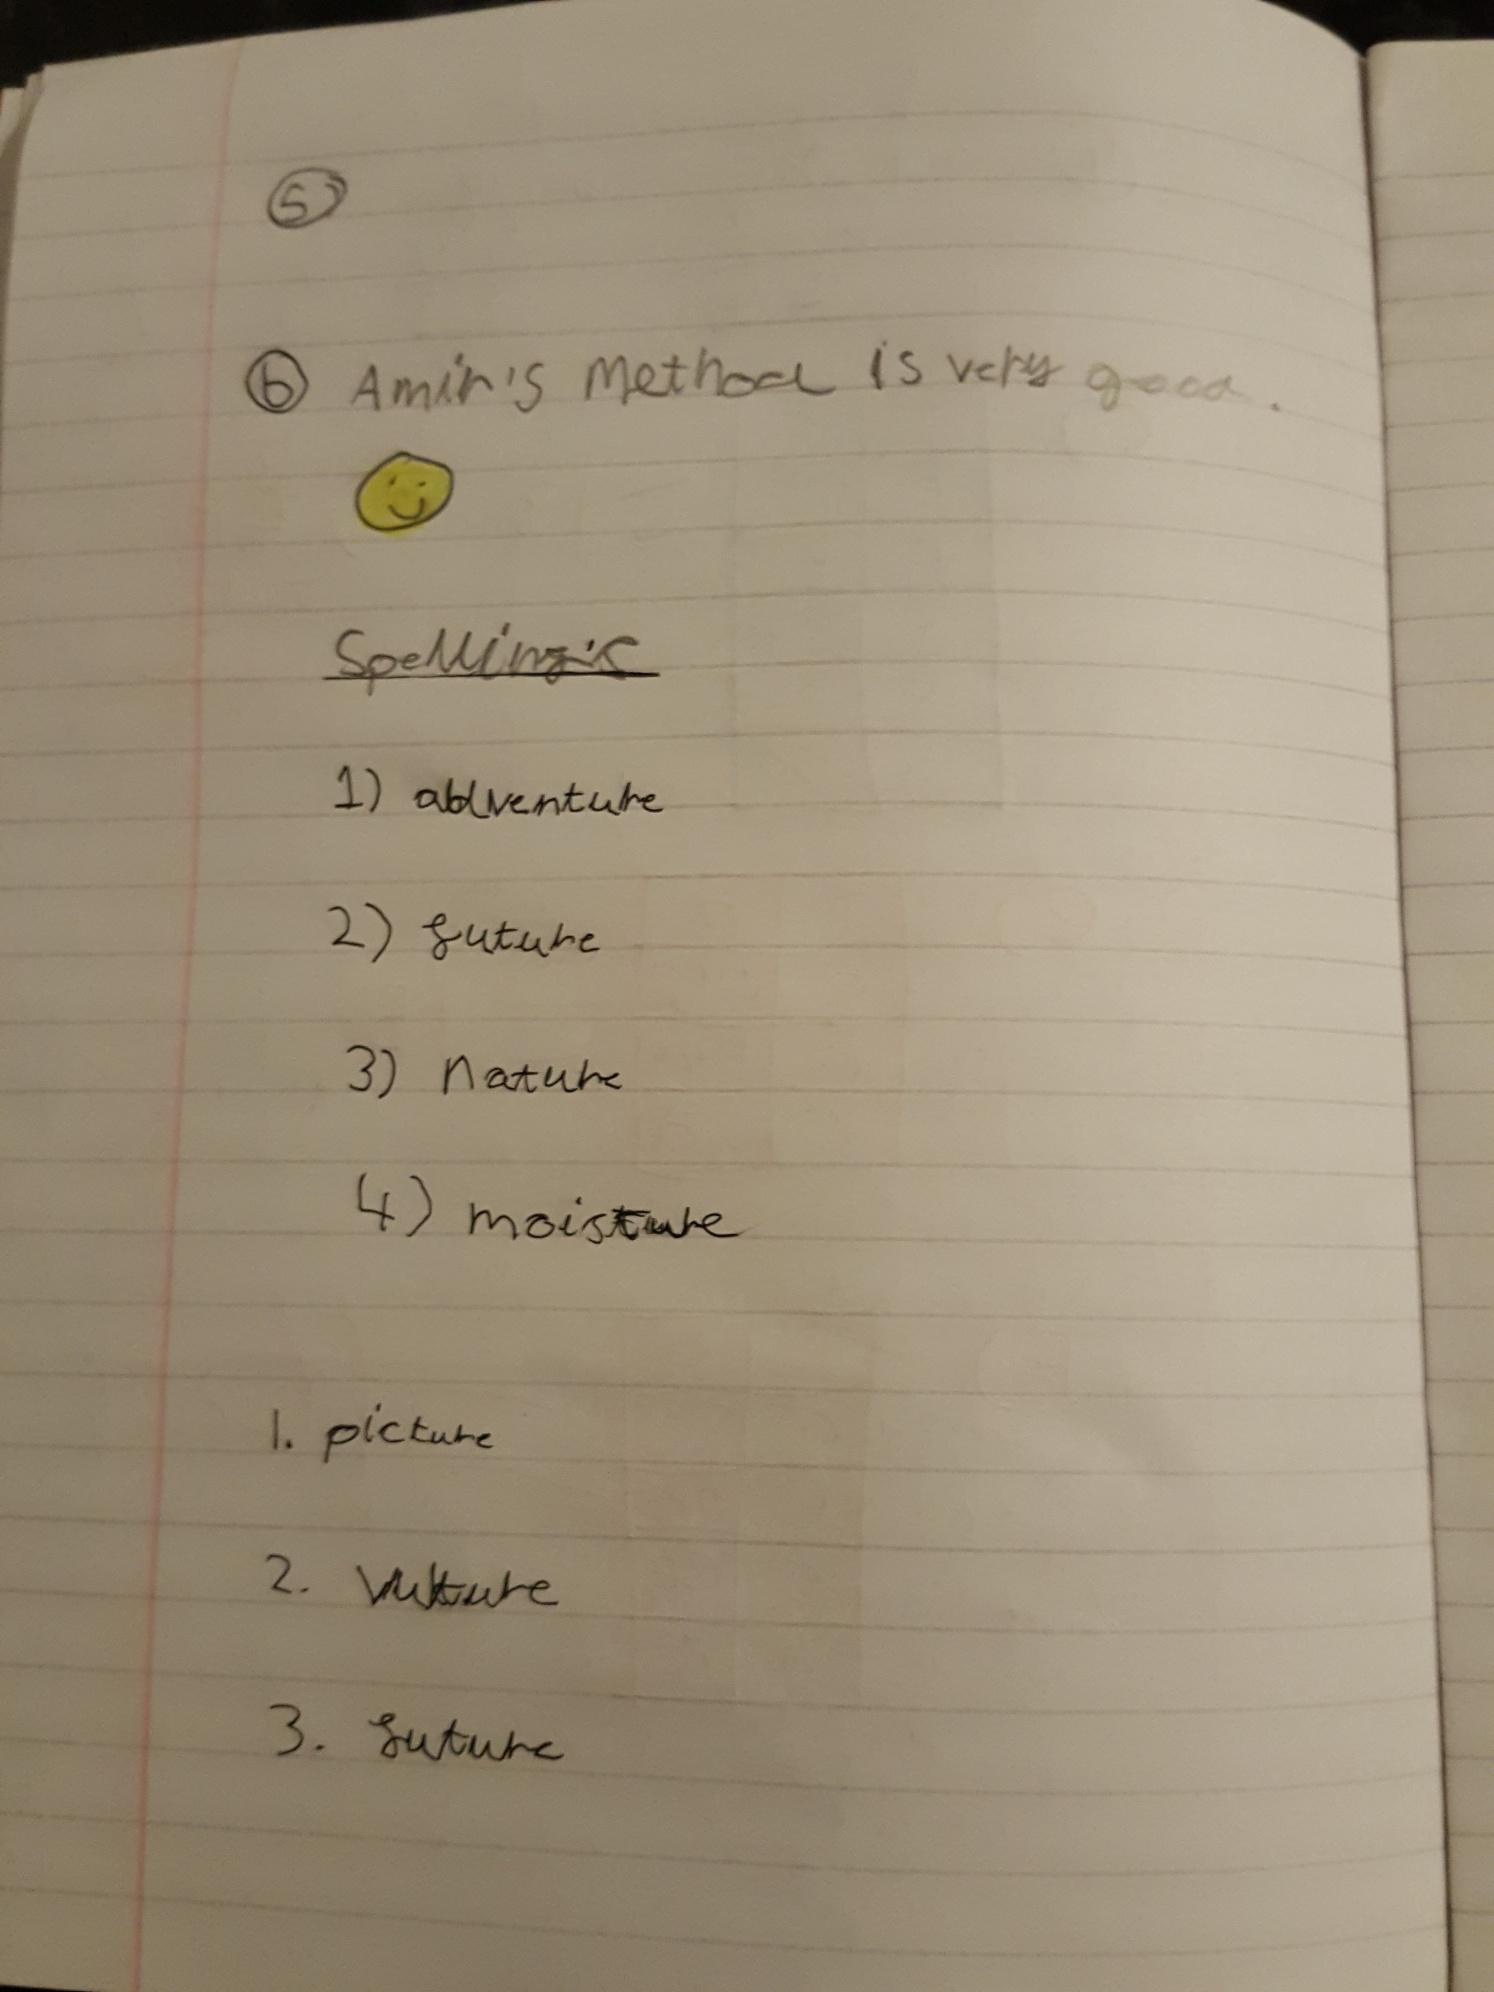 5
6 Amir's Method is very good.
Spelling's
1) adventure
2) future
3) nature
4) moisture
1. picture
2. vulture
3. future